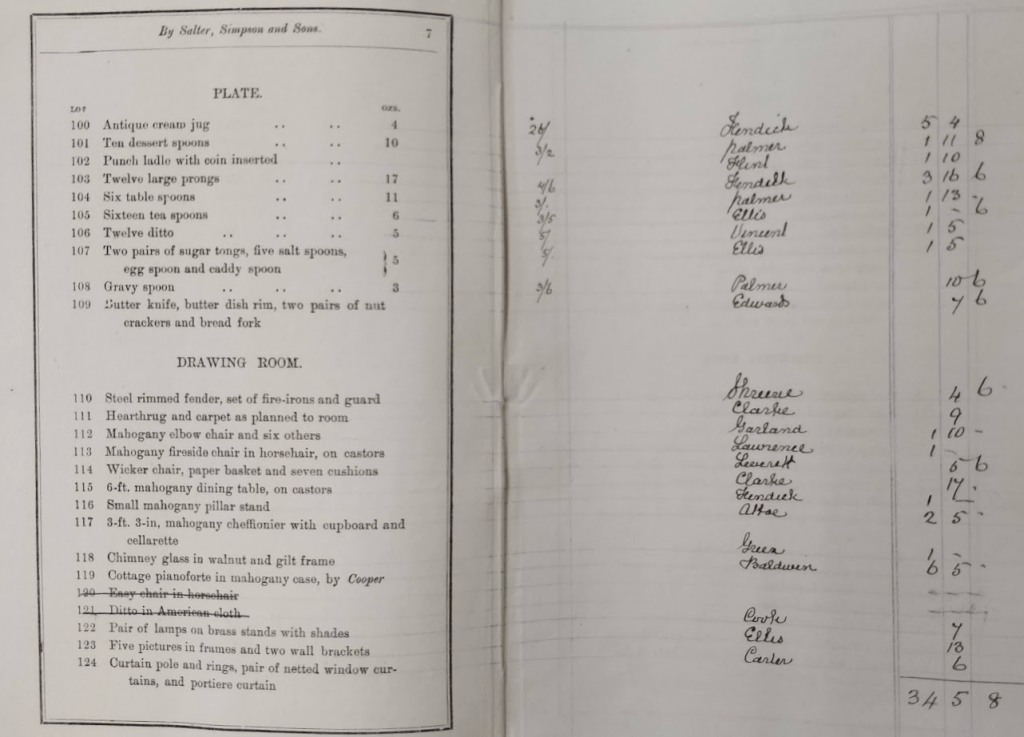 By Salter, Simpson and Sons. 7
PLATE.
LOT OZS.
100 Antique cream jug .. .. 4
101 Ten dessert spoons .. .. 10
102 Punch ladle with coin inserted ..
103 Twelve large prongs .. .. 17
104 Six table spoons .. .. 11
105 Sixteen tea spoons .. .. 6
106 Twelve ditto .. .. .. 5
107 Two pairs of sugar tongs, five salt spoons,
egg spoon and caddy spoon } 5
108 Gravy spoon .. .. .. 3
109 Butter knife, butter dish rim, two pairs of nut
crackers and bread fork
DRAWING ROOM.
110 Steel rimmed fender, set of fire-irons and guard
111 Hearthrug and carpet as planned to room
112 Mahogany elbow chair and six others
113 Mahogany fireside chair in horsehair, on castors
114 Wicker chair, paper basket and seven cushions
115 6-ft. mahogany dining table, on castors
116 Small mahogany pillar stand
117 3-ft. 3-in, mahogany cheffionier with cupboard and
cellarette
118 Chimney glass in walnut and gilt frame
119 Cottage pianoforte in mahogany case, by Cooper
120 Easy chair in horsehair
121 Ditto in American cloth
122 Pair of lamps on brass stands with shades
123 Five pictures in frames and two wall brackets
124 Curtain pole and rings, pair of netted window cur-
tains, and portiere curtain
26/ Kendick 5 4
3/2 Palmer 1 11 8
Flint 1 10
4/6 Kendick 3 16 6
3/. Palmer 1 13 -
3/5 Ellis 1 - 6
5/ Vincent 1 5
5/. Ellis 1 5
3/6 Palmer 10 6
Edwards 7 6
4 6
Clarke 9
Garland 1 10 -
Lawrence 1 -
Leverett 5 6
Clarke 17 .
Kendick 1
2 5 -
Green 1 -
Baldwin 6 5 -
Cook 7
Ellis 13
Carter 6
34 5 8